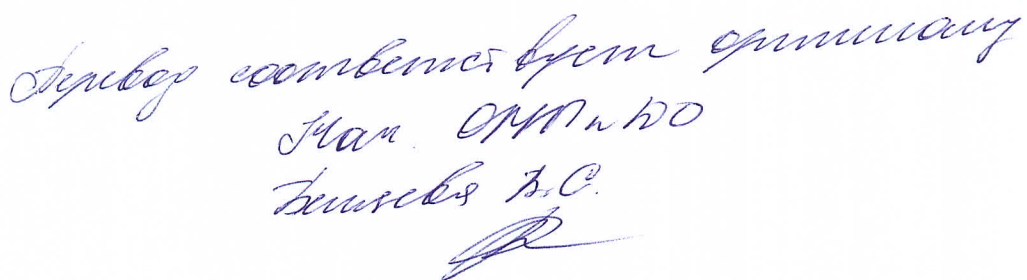 Перевод соответствует оригиналу
Нач. ОМПиЮО
Б. С.